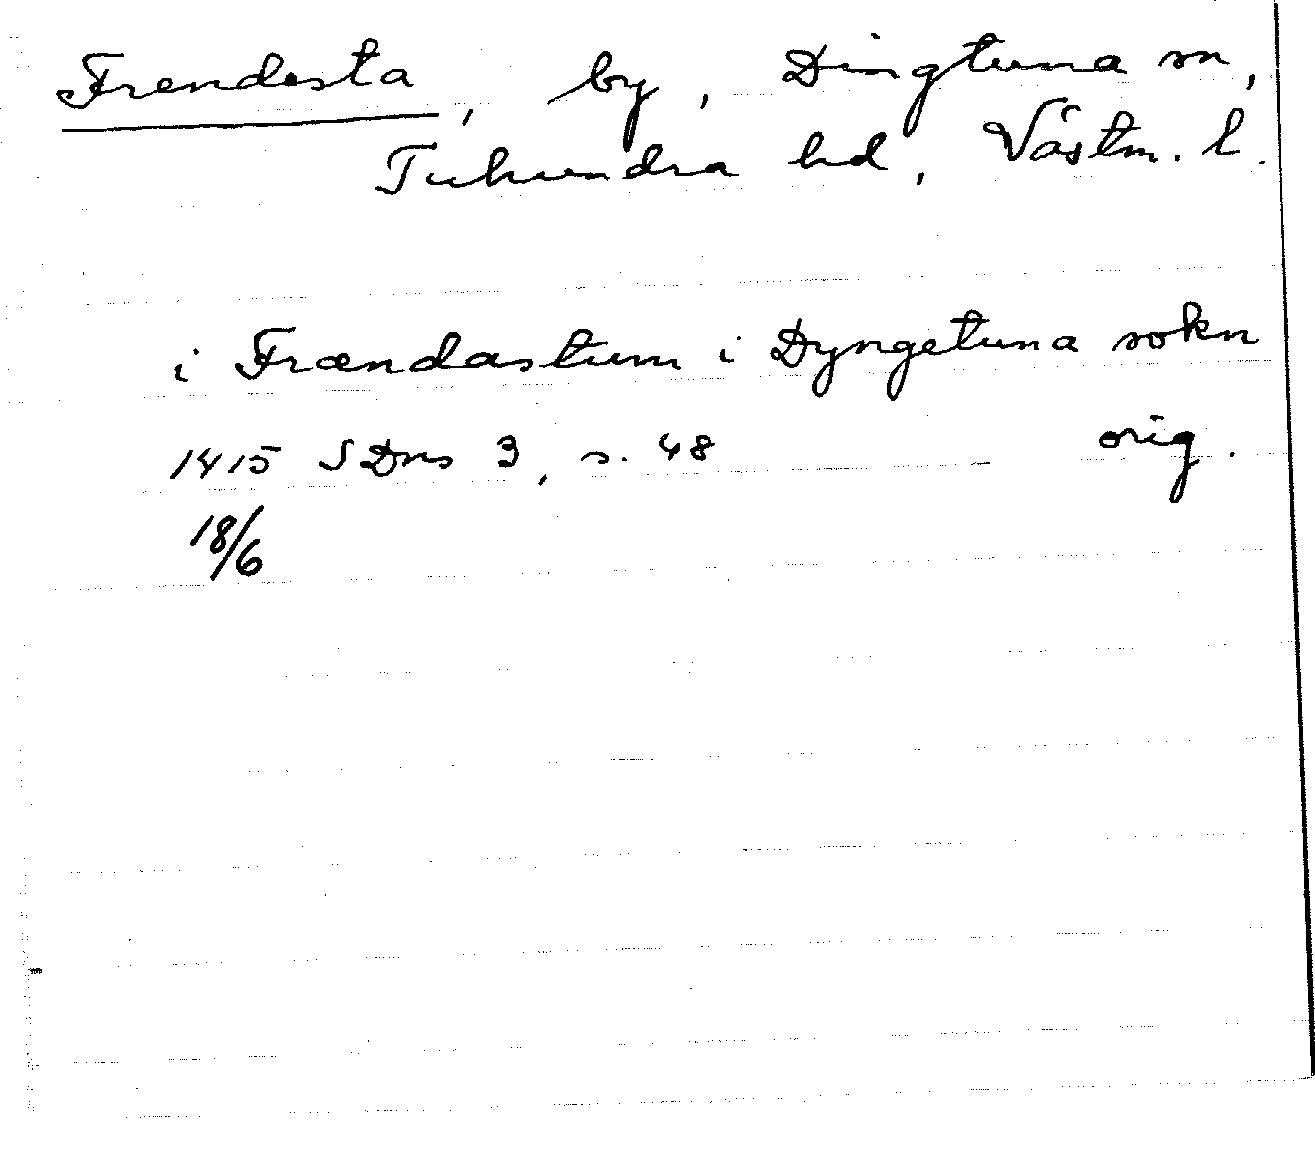 Frendesta, by, Dingtuna sn,
Tuhundra hd, Västm. l.
i Frændastum i Dyngetuna sokn
1415 SDns 3, s. 48 orig.
18/6